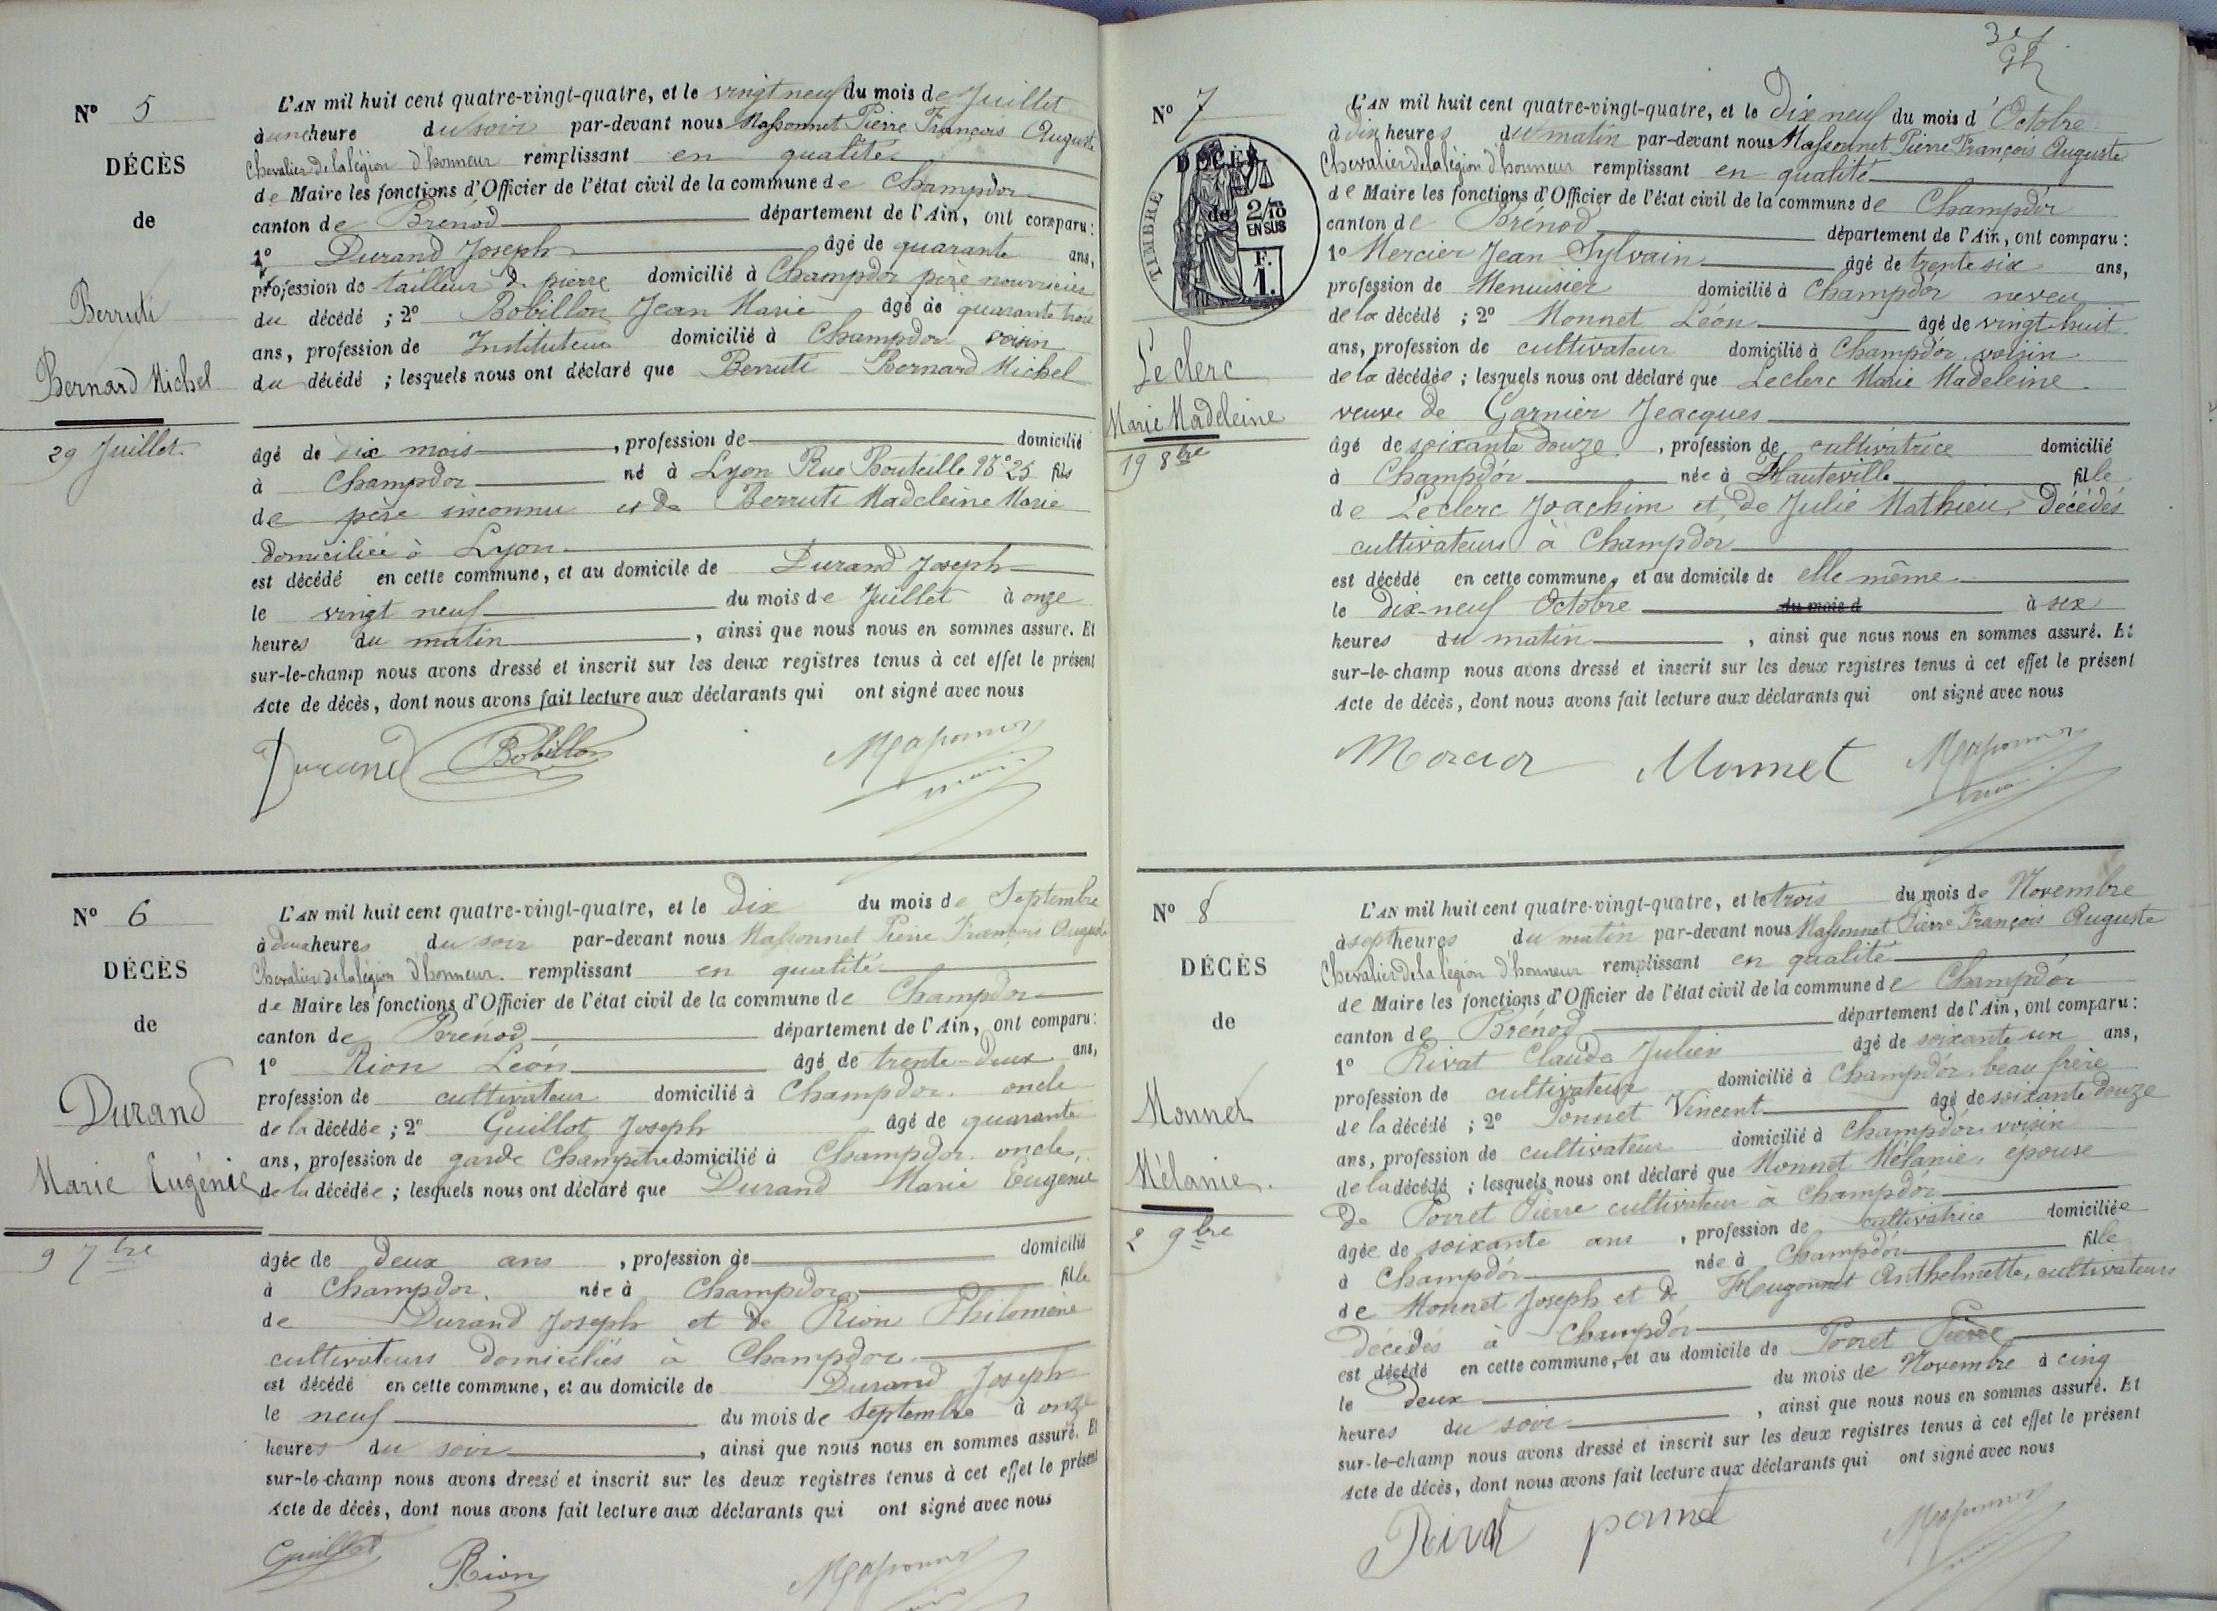 N° 5
DÉCÈS
de
Berruti
Bernard Michel
29 Juillet.
L'AN mil huit cent quatre-vingt-quatre, et le vingt neuf du mois de Juillet
à une heure du soir par-devant nous Massonnet Pierre François Auguste
Chevalier de la légion d'honneur remplissant en qualité
de Maire les fonctions d'Officier de l'état civil de la commune de Champdor
canton de Brénod département de l'Ain, ont comparu :
1° Durand Joseph âgé de quarante ans,
profession de tailleur de pierre domicilié à Champdor père nourricier
du décédé ; 2° Bobillon Jean Marie âgé de quarante trois
ans, profession de Instituteur domicilié à Champdor voisin
du décédé ; lesquels nous ont déclaré que Berruti Bernard Michel
âgé de dix mois , profession de domicilié
à Champdor né à Lyon Rue Bouteille N° 25 fils
de père inconnu et de Berruti Madeleine Marie
domiciliée à Lyon
est décédé en cette commune, et au domicile de Durand Joseph
le vingt neuf du mois de Juillet à onze
heures du matin , ainsi que nous nous en sommes assuré. Et
sur-le-champ nous avons dressé et inscrit sur les deux registres tenus à cet effet le présent
Acte de décès, dont nous avons fait lecture aux déclarants qui ont signé avec nous
Durand Bobillon Massonnet
N° 6
DÉCÈS
de
Durand
Marie Eugénie
9 7bre
L'AN mil huit cent quatre-vingt-quatre, et le dix du mois de Septembre
à deux heures du soir par-devant nous Massonnet Pierre François Auguste
Chevalier de la légion d'honneur. remplissant en qualité
de Maire les fonctions d'Officier de l'état civil de la commune de Champdor
canton de Brénod département de l'Ain, ont comparu :
1° Rion Léon âgé de trente-deux ans,
profession de cultivateur domicilié à Champdor. oncle
de la décédée ; 2° Guillot Joseph âgé de quarante
ans, profession de garde Champêtre domicilié à Champdor. oncle,
de la décédée ; lesquels nous ont déclaré que Durand Marie Eugénie
âgée de deux ans , profession de domicilié
à Champdor. née à Champdor fille
de Durand Joseph et de Rion Philomène
cultivateurs domiciliés à Champdor
est décédé en cette commune, et au domicile de Durand Joseph
le neuf du mois de Septembre à onze
heures du soir , ainsi que nous nous en sommes assuré. Et
sur-le-champ nous avons dressé et inscrit sur les deux registres tenus à cet effet le présent
Acte de décès, dont nous avons fait lecture aux déclarants qui ont signé avec nous
Guillot Rion Massonnet
N° 7
DÉCÈS
de
TIMBRE
2/10
EN SUS
F.
1.
Leclerc
Marie Madeleine
19 8bre
L'AN mil huit cent quatre-vingt-quatre, et le Dix neuf du mois d'Octobre
à dix heures du matin par-devant nous Massonnet Pierre François Auguste
Chevalier de la légion d'honneur remplissant en qualité
de Maire les fonctions d'Officier de l'état civil de la commune de Champdor
canton de Brénod département de l'Ain, ont comparu :
1° Mercier Jean Sylvain âgé de trente six ans,
profession de Menuisier domicilié à Champdor neveu
de la décédé ; 2° Monnet Léon âgé de vingt-huit
ans, profession de cultivateur domicilié à Champdor. voisin
de la décédée ; lesquels nous ont déclaré que Leclerc Marie Madeleine.
veuve de Garnier Jeacques
âgé de soixante douze. , profession de cultivatrice domicilié
à Champdor née à Hauteville fille
de Leclerc Joachim et de Julie Mathieu, décédés
cultivateurs à Champdor
est décédé en cette commune, et au domicile de elle même
le Dix-neuf Octobre du mois d à six
heures du matin , ainsi que nous nous en sommes assuré. Et
sur-le-champ nous avons dressé et inscrit sur les deux registres tenus à cet effet le présent
Acte de décès, dont nous avons fait lecture aux déclarants qui ont signé avec nous
Mercier Monnet Massonnet
N° 8
DÉCÈS
de
Monnet
Mélanie.
2 9bre
L'AN mil huit cent quatre-vingt-quatre, et le trois du mois de Novembre
à sept heures du matin par-devant nous Massonnet Pierre François Auguste
Chevalier de la légion d'honneur remplissant en qualité
de Maire les fonctions d'Officier de l'état civil de la commune de Champdor
canton de Brénod département de l'Ain, ont comparu :
1° Rivat Claude Julien âgé de soixante un ans,
profession de cultivateur domicilié à Champdor. beau frère
de la décédé ; 2° Ponnet Vincent âgé de soixante douze
ans, profession de cultivateur domicilié à Champdor voisin
de la décédé ; lesquels nous ont déclaré que Monnet Mélanie, épouse
de Porret Pierre cultivateur à Champdor
âgée de soixante ans , profession de cultivatrice domiciliée
à Champdor née à Champdor fille
de Monnet Joseph et de Hugonnet Anthelmette, cultivateurs
décédés à Champdor
est décédé en cette commune, et au domicile de Porret Pierre
le deux du mois de Novembre à cinq
heures du soir , ainsi que nous nous en sommes assuré. Et
sur-le-champ nous avons dressé et inscrit sur les deux registres tenus à cet effet le présent
Acte de décès, dont nous avons fait lecture aux déclarants qui ont signé avec nous
Rivat ponnet Massonnet